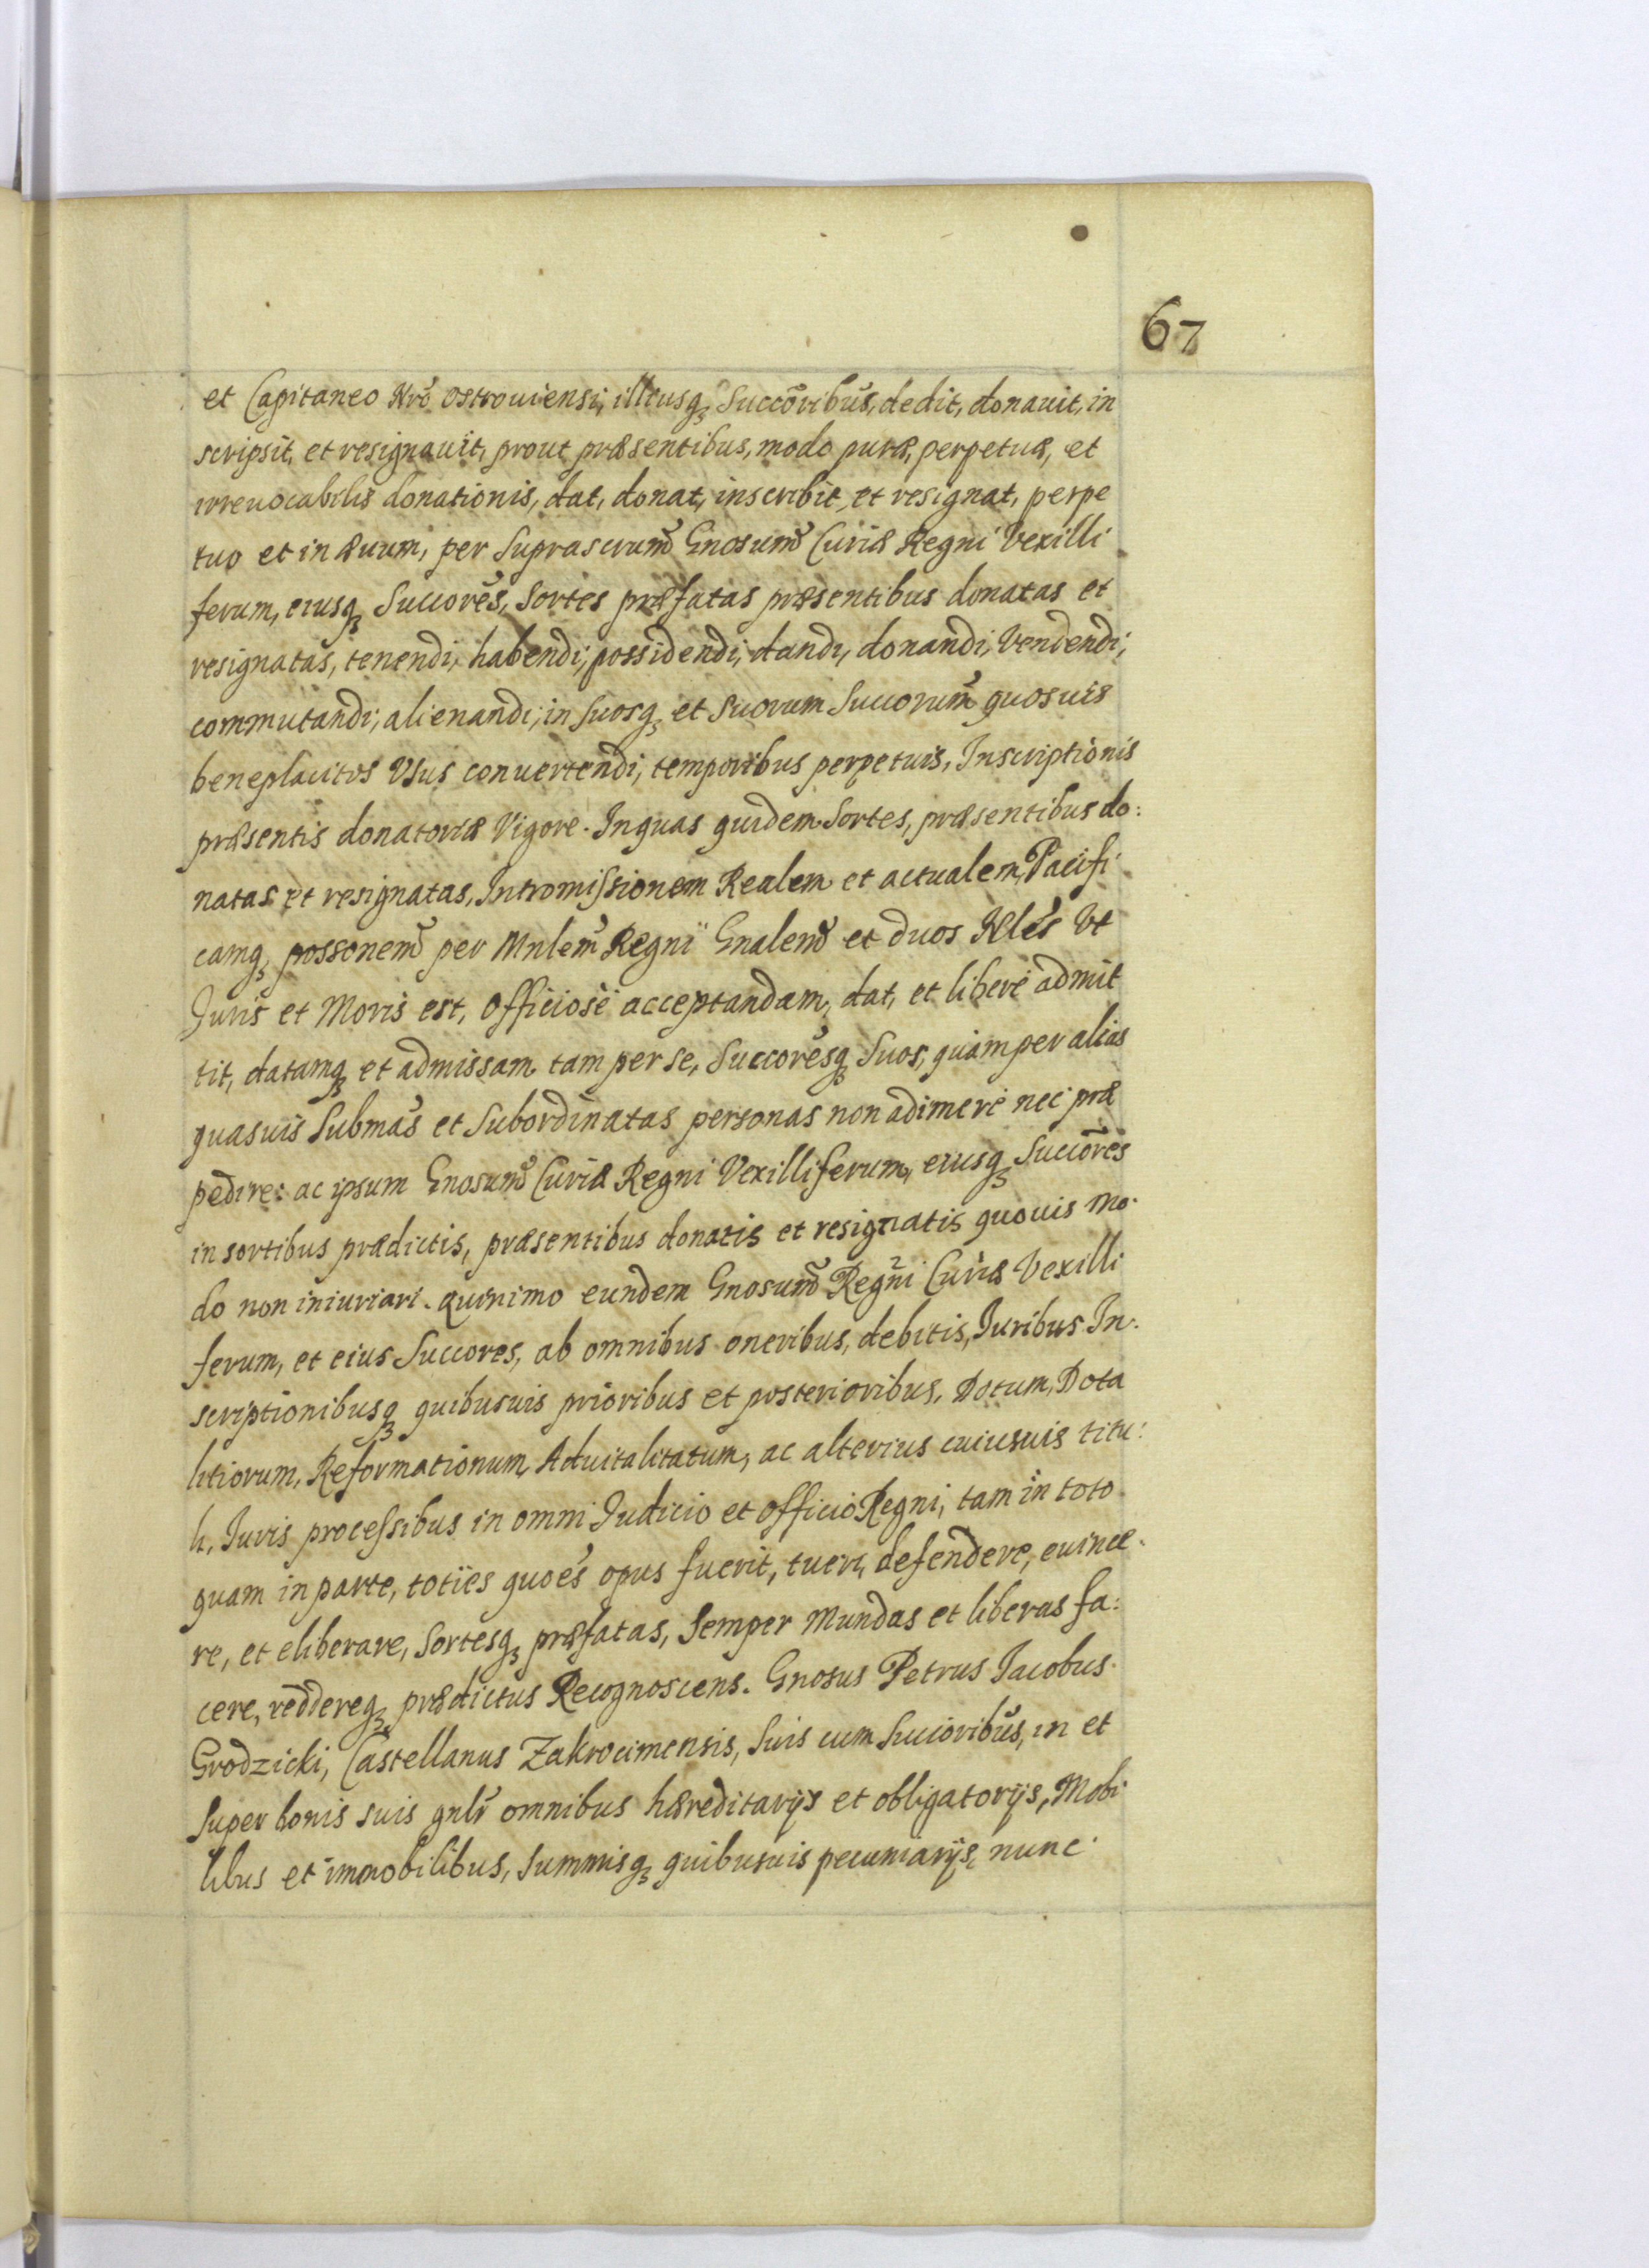 67
et Capitaneo Nrõ Ostrouiensi, illiusq Succõribus, dedit, donauit, in
scripsit, et resignauit, prout præsentibus, modo puræ, perpetuæ, et
irreuocabilis donationis, dat, donat, inscribit, et resignat, perpe
tuo et in æuum, per suprascrum̃ Gnosum̃ Curiæ Regni Vexilli
ferum, eiusq Succorẽs, Sortes præfatas præsentibus donatas et
resignatas, tenendi, habendi, possidendi, dandi, donandi, Vendendi,
commutandi, alienandi, in suosq et suorum Succorum̃ quosuis
beneplacitos Vsus conuertendi, temporibus perpetuis, Inscriptionis
præsentis donatoriæ Vigore. In quas quidem Sortes, præsentibus do:
natas et resignatas, Intromissionem Realem et actualem, Pacifi
camq possonem̃ per Mnlem̃ Regni Gnalem̃ et duos Nlẽs Vt
Juris et Moris est, Officiosè acceptandam, dat, et liberè admit
tit, datamq et admissam tam per se, Succorẽsq Suos, quàm per alias
quasuis Submãs et Subordinatas personas non adimere nec præ
pedire: ac ipsum Gnosum̃ Curiæ Regni Vexilliferum, eiusq Succõres
in sortibus prædictis, præsentibus donatis et resignatis quouis mo.
do non iniuriari. Quinimo eundem Gnosum̃ Regni Curiæ Vexilli
ferum, et eius Succores, ab omnibus oneribus, debitis, Iuribus In.
scriptionibusq quibusuis prioribus et posterioribus, Dotum, Dota
litiorum, Reformationum, Aduitalitatum, ac alterius cuiusuis titu:
li, Iuris processibus in omni Iudicio et officio Regni, tam in toto
quam in parte, toties quoẽs opus fuerit, tueri, defendere, euince.
re, et eliberare, Sortesq præfatas, Semper Mundas et liberas fa:
cere, reddereq, prædictus Recognoscens. Gnosus Petrus Iacobus.
Grodzicki, Castellanus Zakrocimensis, Suis cum Succoribus̃, in et
super bonis suis gnlr̃ omnibus hæreditarijs et obligatorijs, Mobi
libus et immobilibus, Summisq quibusuis pecuniarijs, nunc